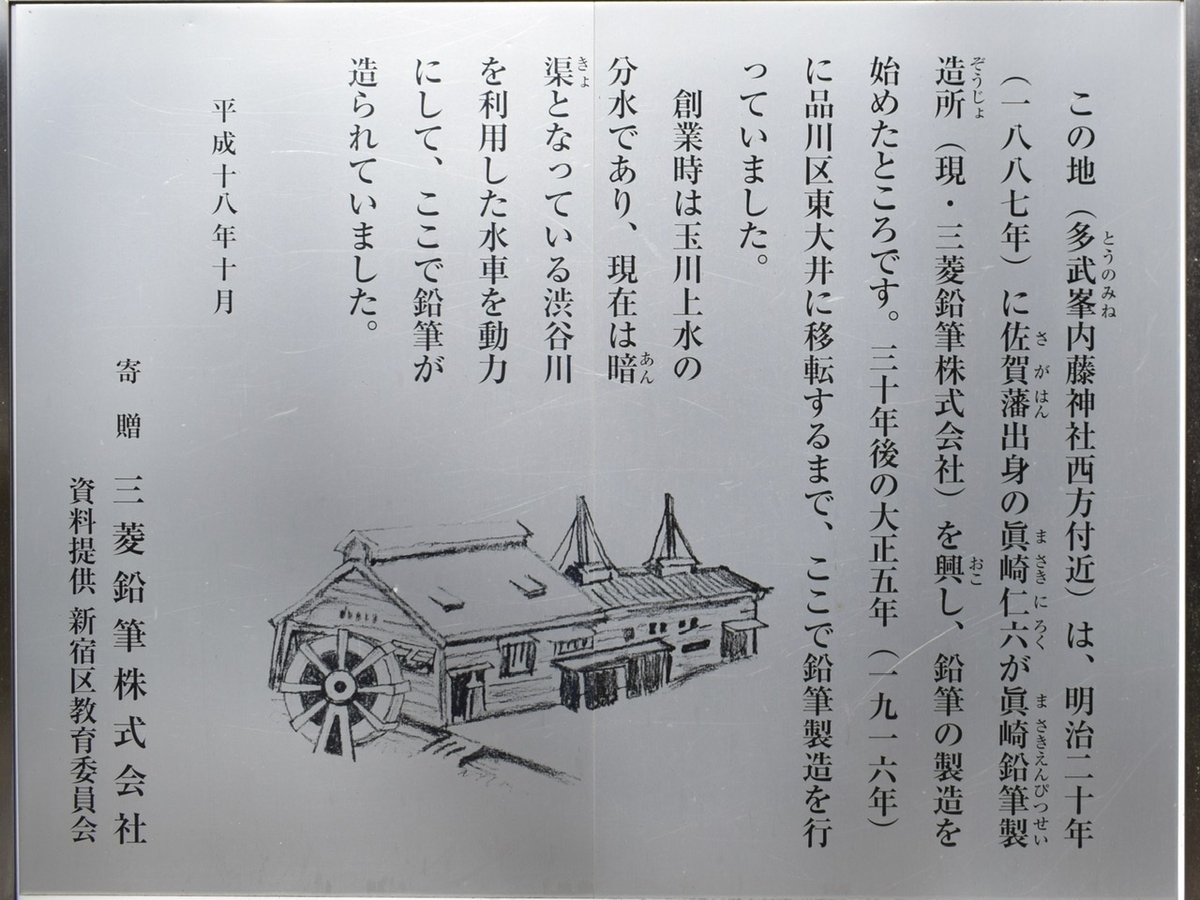 この地（多武峯内藤神社西方付近）は、明治二十年
（一八八七年）に佐賀藩出身の眞崎仁六が眞崎鉛筆製
造所（現・三菱鉛筆株式会社）を興し、鉛筆の製造を
始めたところです。三十年後の大正五年（一九一六年）
に品川区東大井に移転するまで、ここで鉛筆製造を行
っていました。
創業時は玉川上水の
分水であり、現在は暗
渠となっている渋谷川
を利用した水車を動力
にして、ここで鉛筆が
造られていました。
平成十八年十月
寄贈 三菱鉛筆株式会社
資料提供 新宿区教育委員会